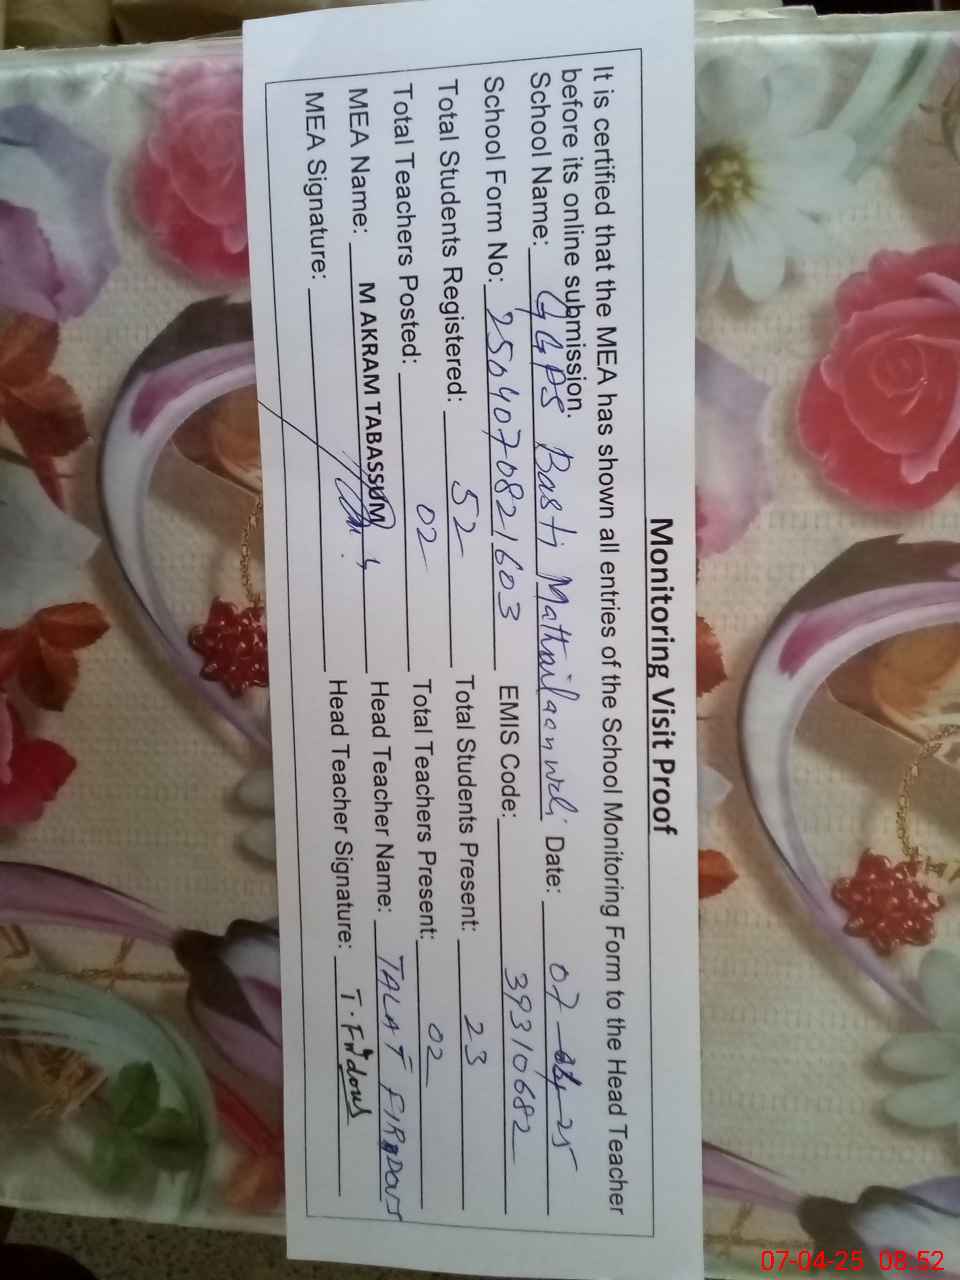 Monitoring Visit Proof
It is certified that the MEA has shown all entries of the School Monitoring Form to the Head Teacher
before its online submission.
School Name: GGPS Basti Date: 07-04-25
School Form No: 2504070821603 EMIS Code: 39310682
Total Students Registered: 52 Total Students Present: 23
Total Teachers Posted: 02 Total Teachers Present: 02
MEA Name: M AKRAM TABASSUM Head Teacher Name: TALAT FIRDOUS
MEA Signature: Head Teacher Signature: T. Firdous
07-04-25 08:52